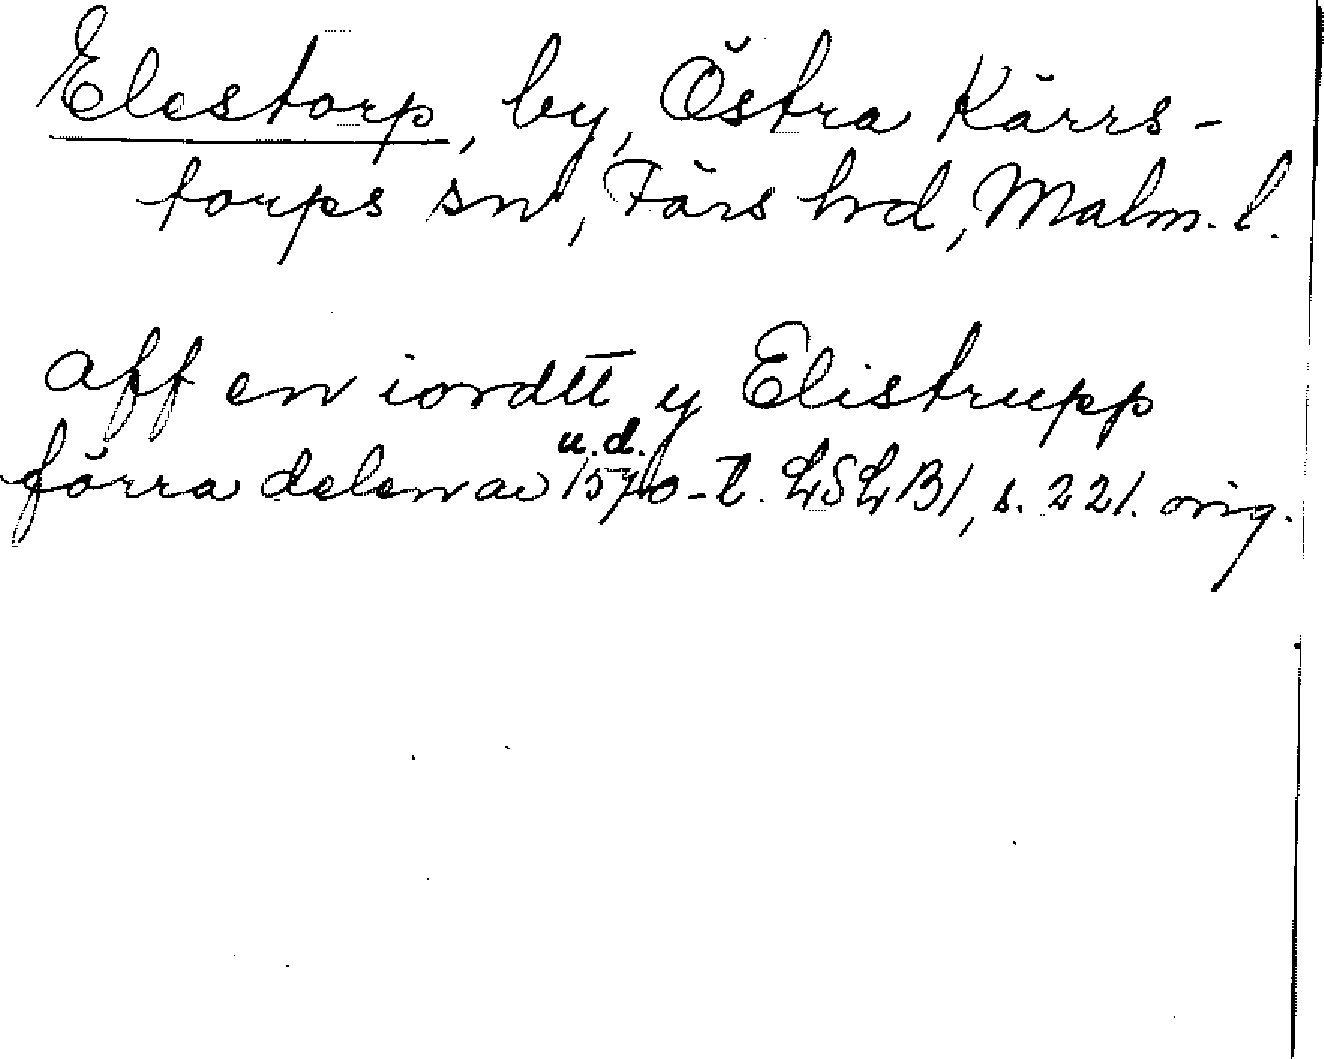 Elestorp, by, Östra Kärrs-
torps sn, Färs hrd, Malm. l.
aff en iordtt y Elistrupp
u.d.
förra delen av 1570-t. LSLB1, s. 221. orig.